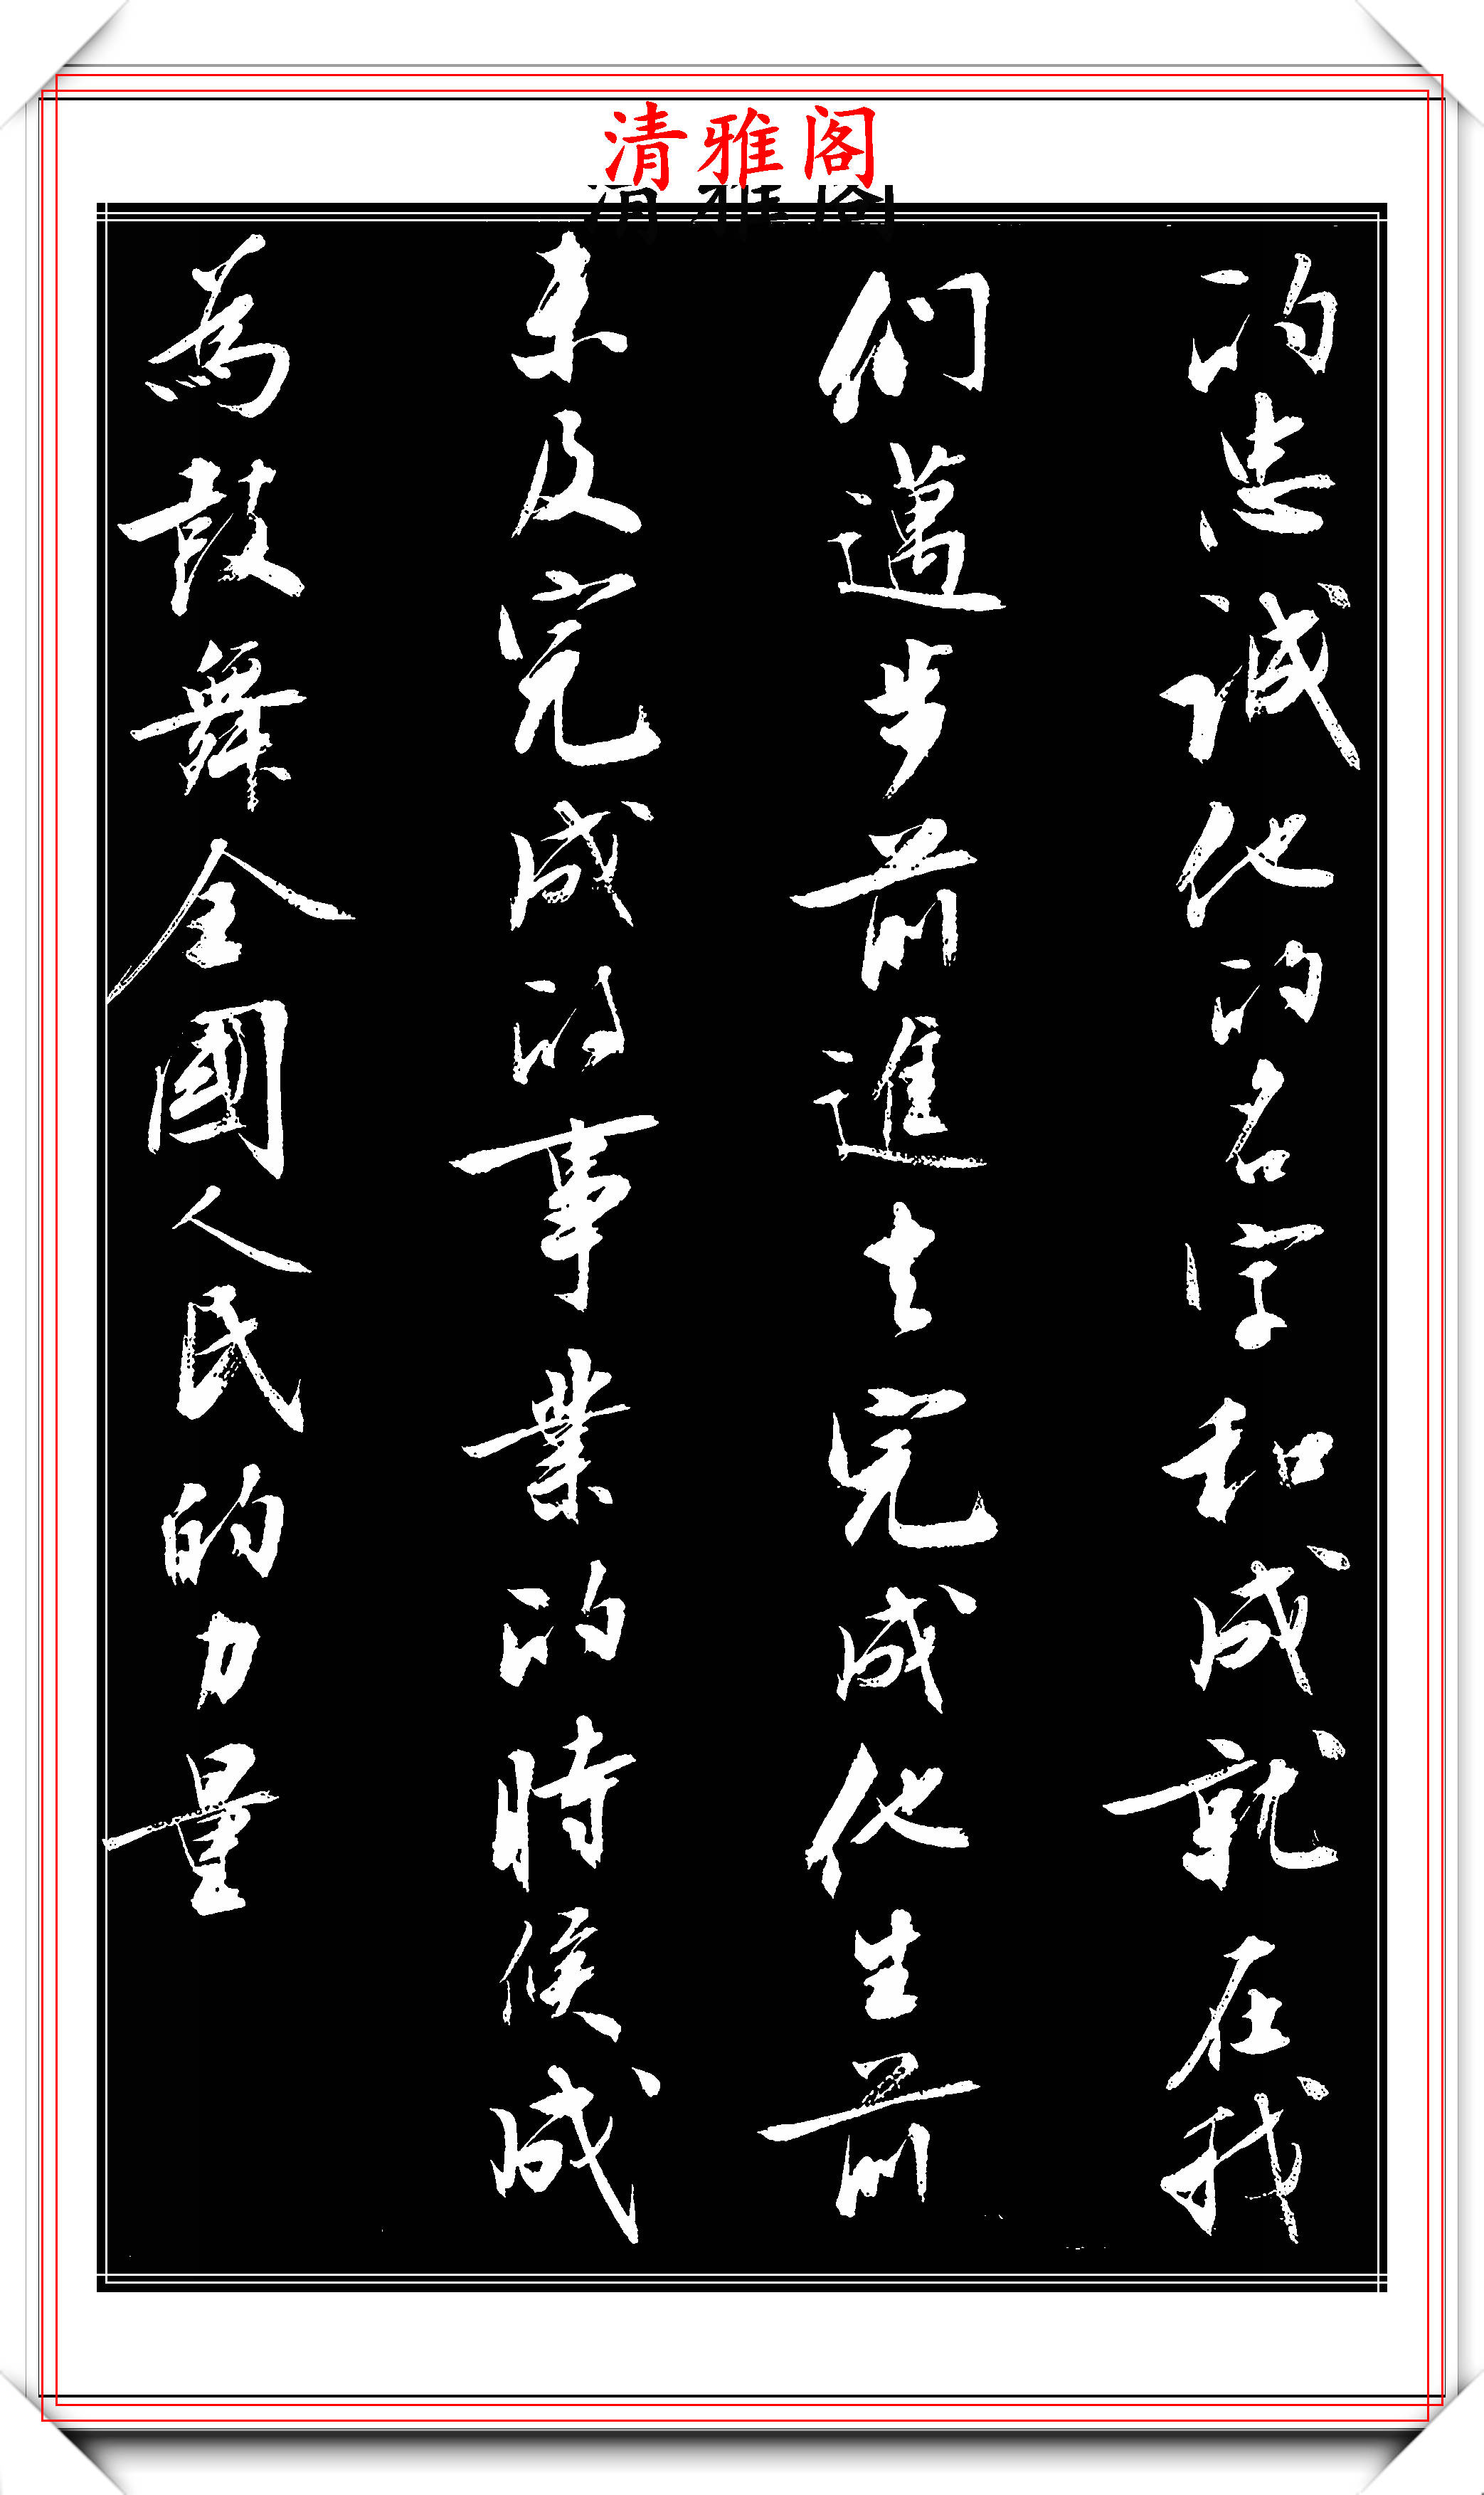 清雅阁
的忠诚他的名字和成就在我
们迈步前進去完成他生前
未及完成的事業的时候成
為鼓舞全國人民的力量